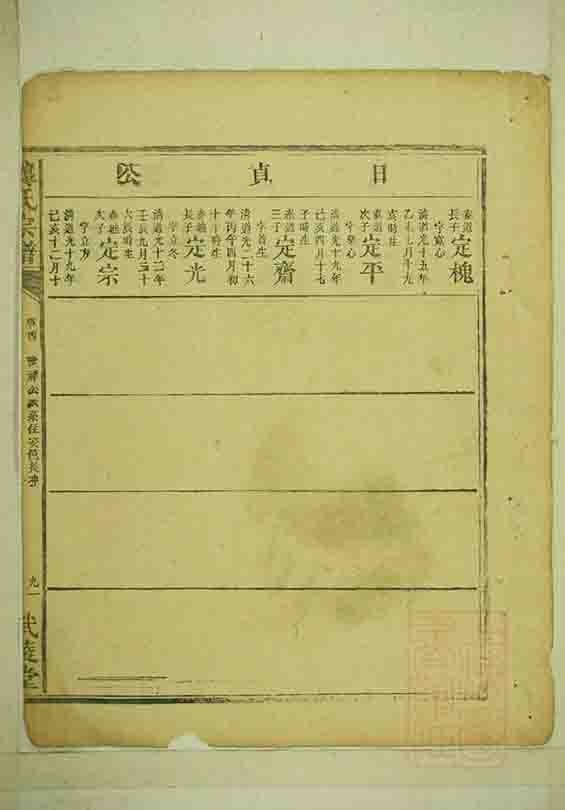 日貞公
泰道長子定槐
字寬心
清道光十五年
乙未七月十九
亥時生
泰道次子定平
字皐心
清道光十九年
己亥四月十七
子時生
泰道三子定齋
字省生
清道光二十六
年丙午四月初
十午時生
泰魁長子定光
字立冬
清道光十二年
壬辰九月三十
戌時生
泰魁次子定宗
字立方
清道光十九年
己亥十二月十
氏宗譜
武陵堂